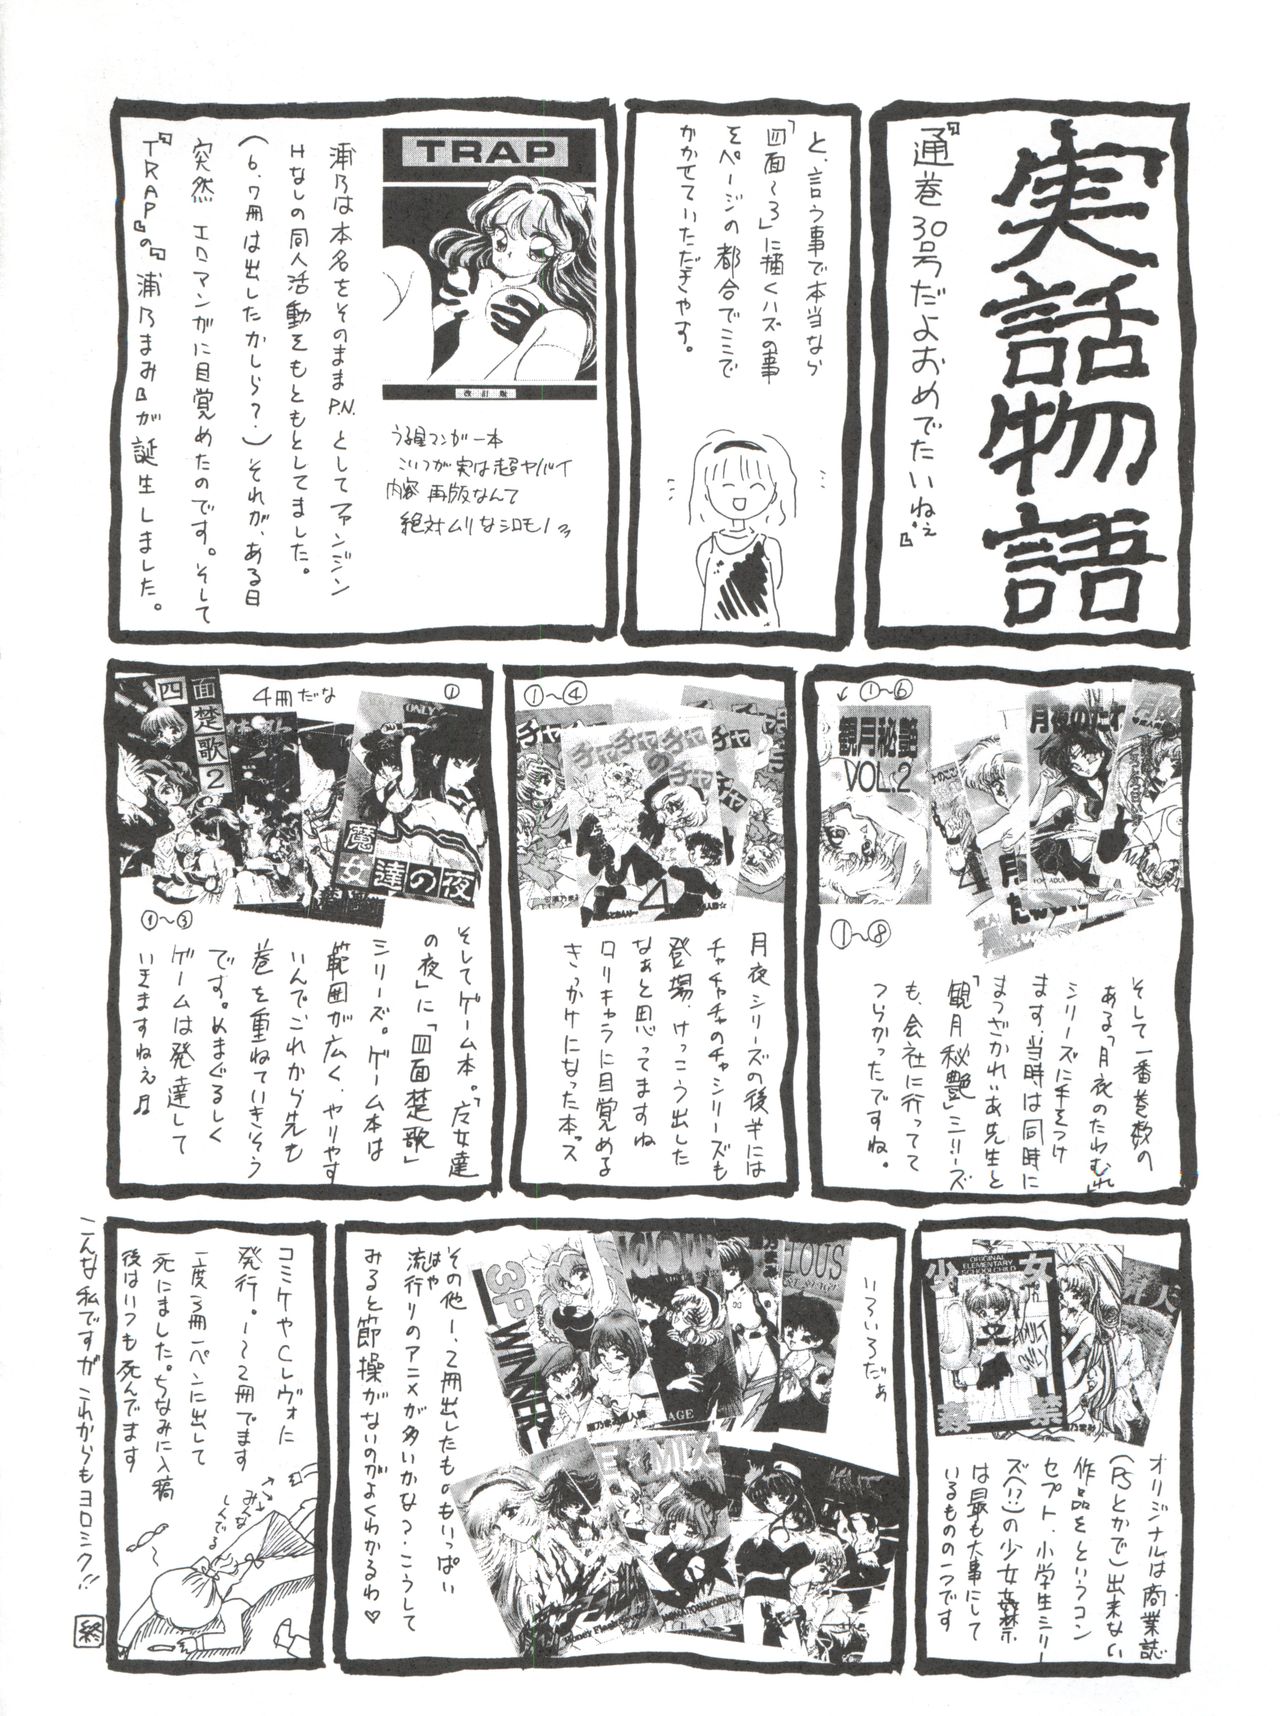 実話物語
『通巻30号だよおめでたいねぇ』
と、言う事で本当なら
「四面〜3」に描くハズの事
をページの都合でココで
かかせていただきやす。
TRAP
改訂版
うる星マンガ一本
こいつが実は超ヤバイ
内容 再版なんて
絶対ムリなシロモノ
浦乃は本名をそのままP.N.としてファンジン
Hなしの同人活動をもともとしてました。
(6.7冊は出したかしら?)それが、ある日
突然 エロマンガに目覚めたのです。そして
『TRAP』の『浦乃まみ』が誕生しました。
①〜⑥
観月秘艶
VOL.2
月夜のたわ
4
①〜⑧
そして一番巻数の
ある「月夜のたわむれ」
シリーズに手をつけ
ます。当時は同時に
まつざかれいあ先生と
「観月秘艶」シリーズ
も、会社に行ってて
つらかったですね。
①〜④
チャチャチャのチャ
4
月夜シリーズの後半には
チャチャチャのチャシリーズも
登場。けっこう出した
なぁと思ってますね
ロリキャラに目覚める
きっかけになった本っス
4冊だな
①
四面楚歌2
ONLY
魔女達の夜
①〜③
そしてゲーム本。「魔女達
の夜」に「四面楚歌」
シリーズ。ゲーム本は
範囲が広く、やりやす
いんでこれから先も
巻を重ねていきそう
です。めまぐるしく
ゲームは発達して
いきますねぇ♬
ORIGINAL
ELEMENTARY
SCHOOLCHILD
少女姦禁
ADULT
ONLY
オリジナルは商業誌
(PSとかで)出来ない
作品をというコン
セプト。小学生シリー
ズ(!?)の少女姦禁
は最も大事にして
いるものの一つです
いろいろだぁ
3P
WINNER
LOUS
AGE
MIX
その他1、2冊出したものもいっぱい
流行りのアニメが多いかな?こうして
はや
みると節操がないのがよくわかるわ♡
コミケやCレヴォに
発行。1〜2冊でます
一度3冊一ペンに出して
死にました。ちなみに入稿
後はいつも死んでます
みんな
しんでる
こんな私ですが これからもヨロシク!!
終